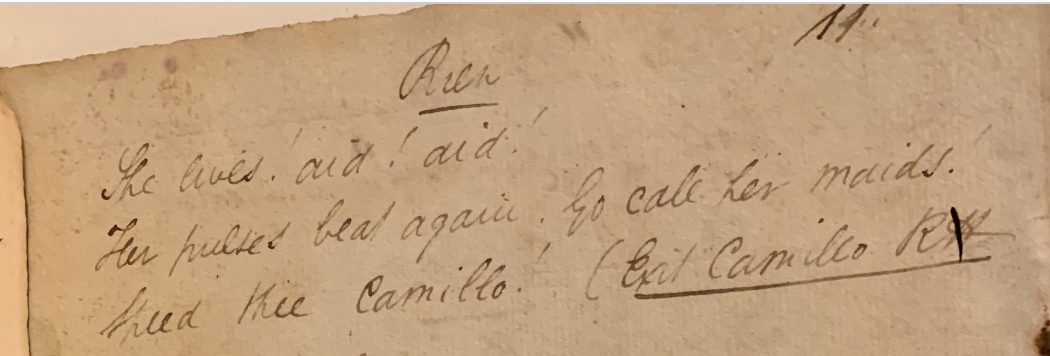 11.
Rien
She lives! aid! aid!
Her pulses beat again. Go call her maids!
Speed thee Camillo! (Exit Camillo